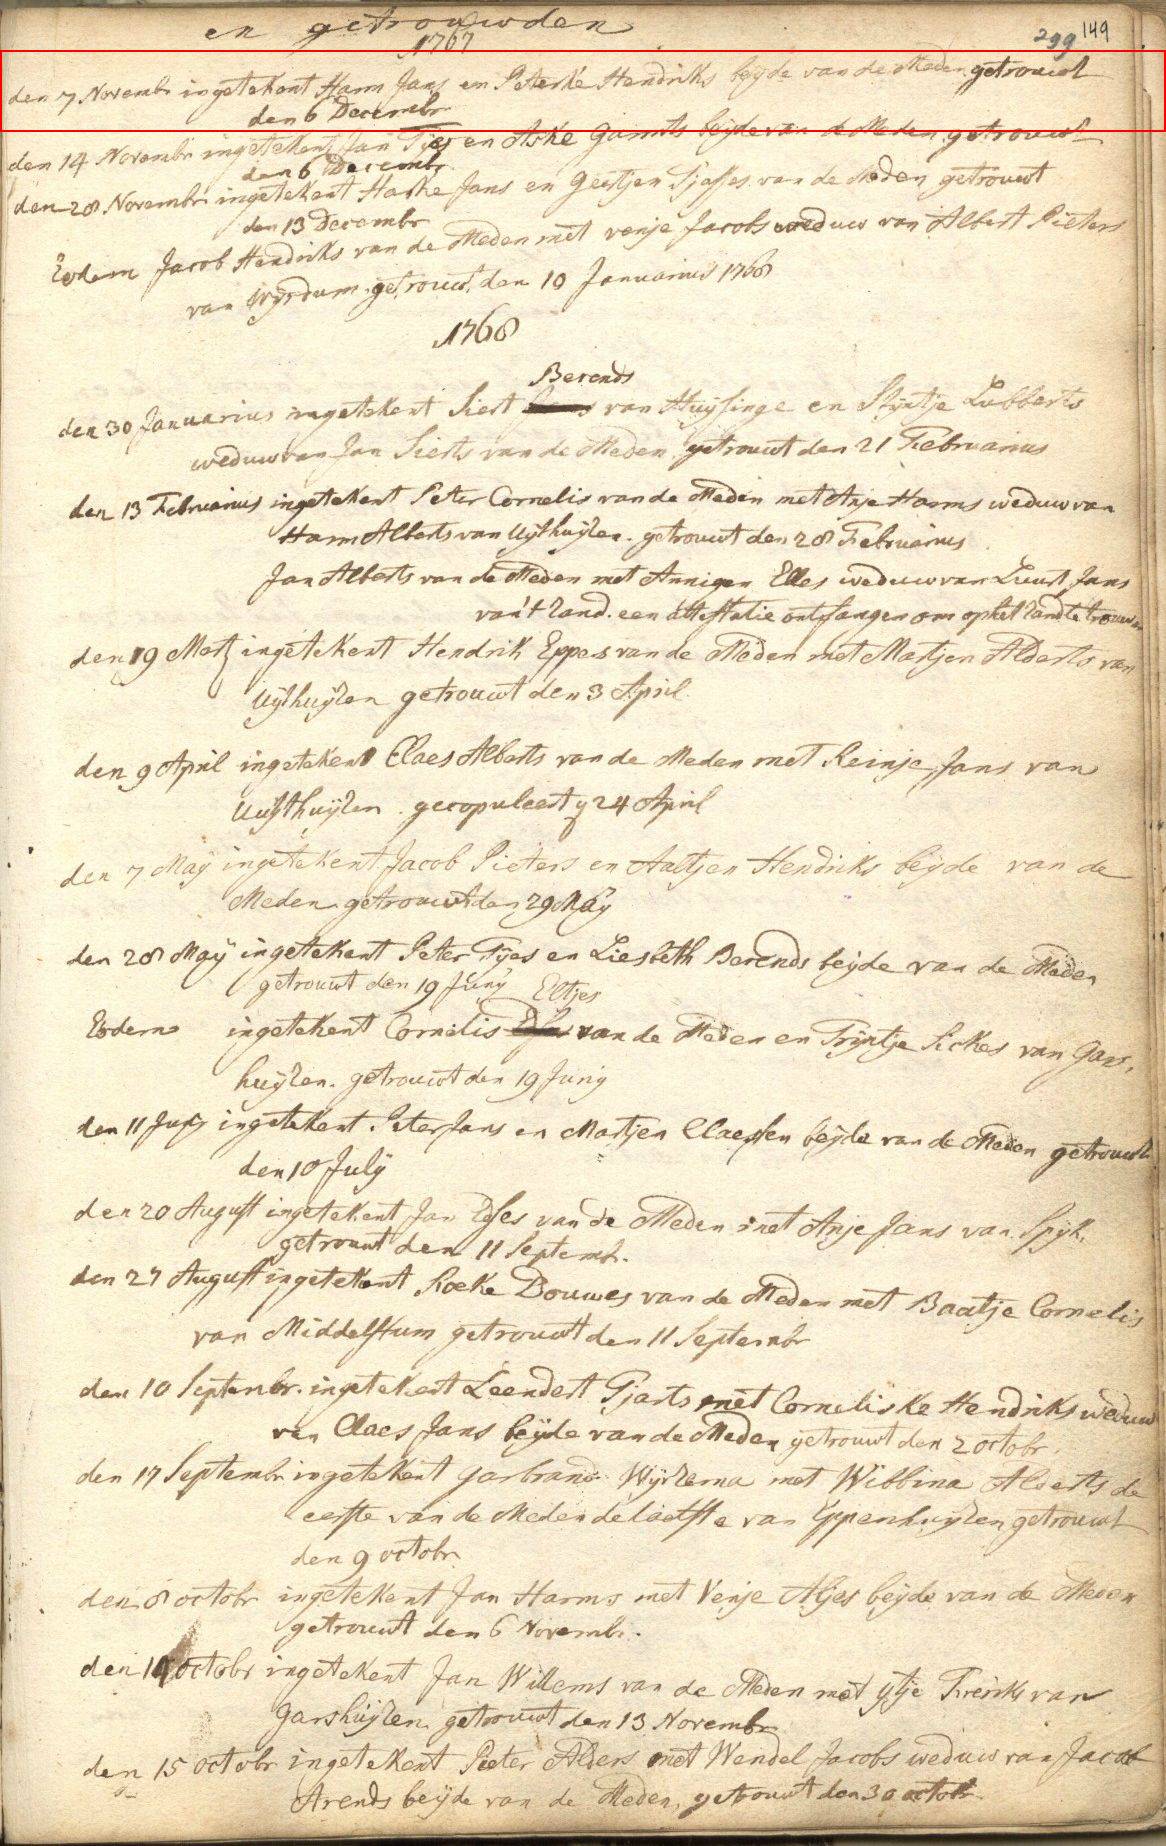 en getrouwden
1767
299 149
den 7 Novembr ingetekent Harm Jans en Peterke Hendriks beijde van de Meden getrouwt
den 6 Decembr
den 14 Novembr ingetekent Jan Tijes en Aske Garmts beijde van de Meden getrouwt
den 6 Decembr
den 28 Novembr ingetekent Harke Jans en Geertjen Tjasses van de Meden getrouwt
den 13 Decembr
Eodem Jacob Hendriks van de Meden met venje Jacobs weduw van Albert Pieters
van Wyrdum getrouwt den 10 Januarius 1768
1768
Berends
den 30 Januarius ingetekent Siert van Huijsinge en Stijntje Lubberts
weduw van Jan Sierts van de Meden getrouwt den 21 Februarius
den 13 Februarius ingetekent Peter Cornelis van de Meden met Anje Harms weduw van
Harm Alberts van Uijthuijzen. getrouwt den 28 Februarius
Jan Alberts van de Meden met Annigen Elles weduw van Luurt Jans
van't Zand. een attestatie ontfangen om op het Zand te trouwen
den 19 Martz ingetekent Hendrik Eppes van de Meden met Martjen Alderts van
Uijthuijzen getrouwt den 3 April
den 9 April ingetekent Claes Alberts van de Meden met Reinje Jans van
Uijthuijzen gecopuleert 24 April
den 7 Maij ingetekent Jacob Pieters en Aaltjen Hendriks beijde van de
Meden getrouwt den 29 Maij
den 28 Maij ingetekent Peter Tijes en Liesbeth Berends beijde van de Meden
getrouwt den 19 Junij
Eltjes
Eodem ingetekent Cornelis van de Meden en Trijntje Sickes van Gars,
huijzen. getrouwt den 19 Junij
den 11 Junij ingetekent Peter Jans en Martjen Claessen beijde van de Meden getrouwt
den 10 Julij
den 20 August ingetekent Jan Edses van de Meden met Anje Jans van Spijk.
getrouwt den 11 Septembr.
den 27 August ingetekent Roeke Douwes van de Meden met Baatje Cornelis
van Middelstum getrouwt den 11 Septembr
den 10 Septembr. ingetekent Leendert Tjarts met Corneliske Hendriks weduw
van Claes Jans beijde van de Meden getrouwt den 2 octobr.
den 17 Septembr ingetekent Garbrand Wijrzema met Wibbina Alberts de
eerste van de Meden de laetste van Eppenhuijzen getrouwt
den 9 octobr
den 8 octobr ingetekent Jan Harms met Venje Aljes beijde van de Meden
getrouwt den 6 Novembr.
den 14 octobr ingetekent Jan Willems van de Meden met ijtje Freriks van
Garshuijzen getrouwt den 13 Novembr
den 15 octobr ingetekent Pieter Alders met Wendel Jacobs weduw van Jacob
Arends beijde van de Meden, getrouwt den 30 octobr.